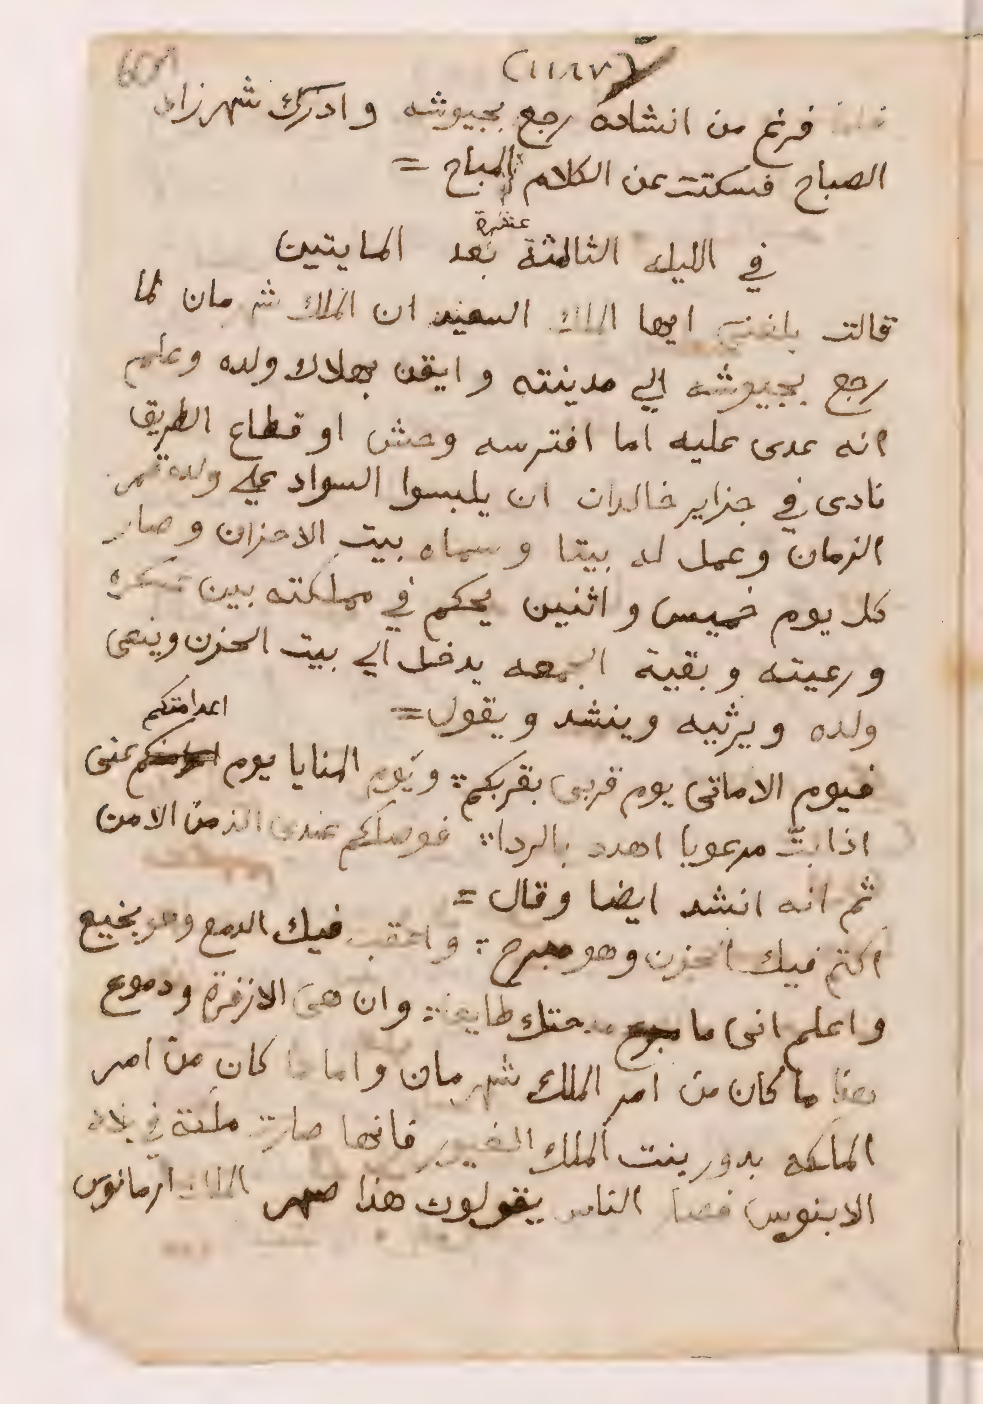 (١١٨٧)
فلما فرغ من انشاده رجع بجيوشه وادرك شهرزاد
الصباح فسكتت عن الكلام المباح =
عشرة
في الليله الثالثة بعد المايتين
قالت بلغني ايها الملك السعيد ان الملك شهرمان لما
رجع بجيوشه الي مدينته وايقن بهلاك ولده وعلم
انه عدى عليه اما افترسه وحش او قطاع الطريق
نادى في جزاير خالدان ان يلبسوا السواد على ولده قمر
الزمان وعمل له بيتا وسماه بيت الاحزان وصار
كل يوم خميس واثنين يحكم في مملكته بين عسكره
ورعيته وبقية الجمعه يدخل الي بيت الحزن وينعى
ولده ويرثيه وينشد ويقول =
فيوم الاماني يوم قربي بقربكم ؞ ويوم المنايا يوم عنى
اذا بتّ مرعوبا اهدد بالردا ؞ فوصلكم عندى الذ من الامن
ثم انه انشد ايضا وقال =
اكتم فيك الحزن وهو مبرح ؞ فيك الدمع وهو بخيع
واعلم انى ما طايعا ؞ وان هى الا زفرة ودموع
هذا ما كان من امر الملك شهرمان واما ما كان من امر
الملكه بدور بنت الملك الغيور فانها صارت ملكة في بلاد
الابنوس فصار الناس يقولون هذا صهر الملك ارمانوس